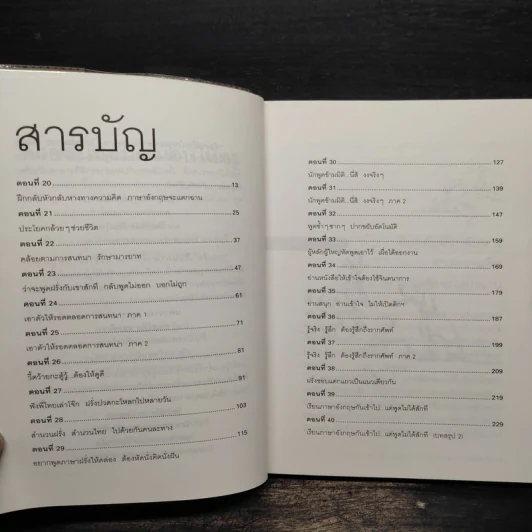 สารบัญ
ตอนที่ 20 13
ฝึกกลับหัวกลับหางทางความคิด ภาษาอังกฤษจะแตกฉาน
ตอนที่ 21 25
ประโยคกล้วยๆ ช่วยชีวิต
ตอนที่ 22 37
คล้อยตามการสนทนา รักษามารยาท
ตอนที่ 23 47
ว่าจะพูดฝรั่งกับเขาสักที กลับพูดไม่ออก บอกไม่ถูก
ตอนที่ 24 61
เอาตัวให้รอดตลอดการสนทนา ภาค 1
ตอนที่ 25 71
เอาตัวให้รอดตลอดการสนทนา ภาค 2
ตอนที่ 26 81
ขี้ตร้ายกะฮู้รู้..ต้องให้ดูดี
ตอนที่ 27 91
ฟังพี่ไทยเล่าโจ๊ก ฝรั่งปวดกะโหลกไปหลายวัน
ตอนที่ 28 103
สำนวนฝรั่ง สำนวนไทย ไปด้วยกันคนละทาง
ตอนที่ 29 115
อยากพูดภาษาฝรั่งให้คล่อง ต้องหัดนั่งคิดนั่งฝัน
ตอนที่ 30 127
นักพูดข้ามมิติ..นี่สิ งงจริงๆ
ตอนที่ 31 139
นักพูดข้ามมิติ..นี่สิ งงจริงๆ ภาค 2
ตอนที่ 32 147
พูดซ้ำๆ ซากๆ ปากขยับอัตโนมัติ
ตอนที่ 33 159
ผู้หลักผู้ใหญ่หัดพูดเอาไว้ เมื่อได้ออกงาน
ตอนที่ 34 169
อ่านหนังสือให้เข้าใจต้องใช้จินตนาการ
ตอนที่ 35 179
อ่านสนุก อ่านเข้าใจ ไม่ให้เปิดดิกฯ
ตอนที่ 36 187
รู้จริง รู้ลึก ต้องรู้สึกถึงรากศัพท์
ตอนที่ 37 199
รู้จริง รู้ลึก ต้องรู้สึกถึงรากศัพท์ ภาค 2
ตอนที่ 38 207
ฝรั่งชอบแตกแถวเป็นแนวเดียวกัน
ตอนที่ 39 219
เรียนภาษาอังกฤษกันเข้าไป ..แต่พูดไม่ได้สักที
ตอนที่ 40 229
เรียนภาษาอังกฤษกันเข้าไป ..แต่พูดไม่ได้สักที (บทสรุป 2)